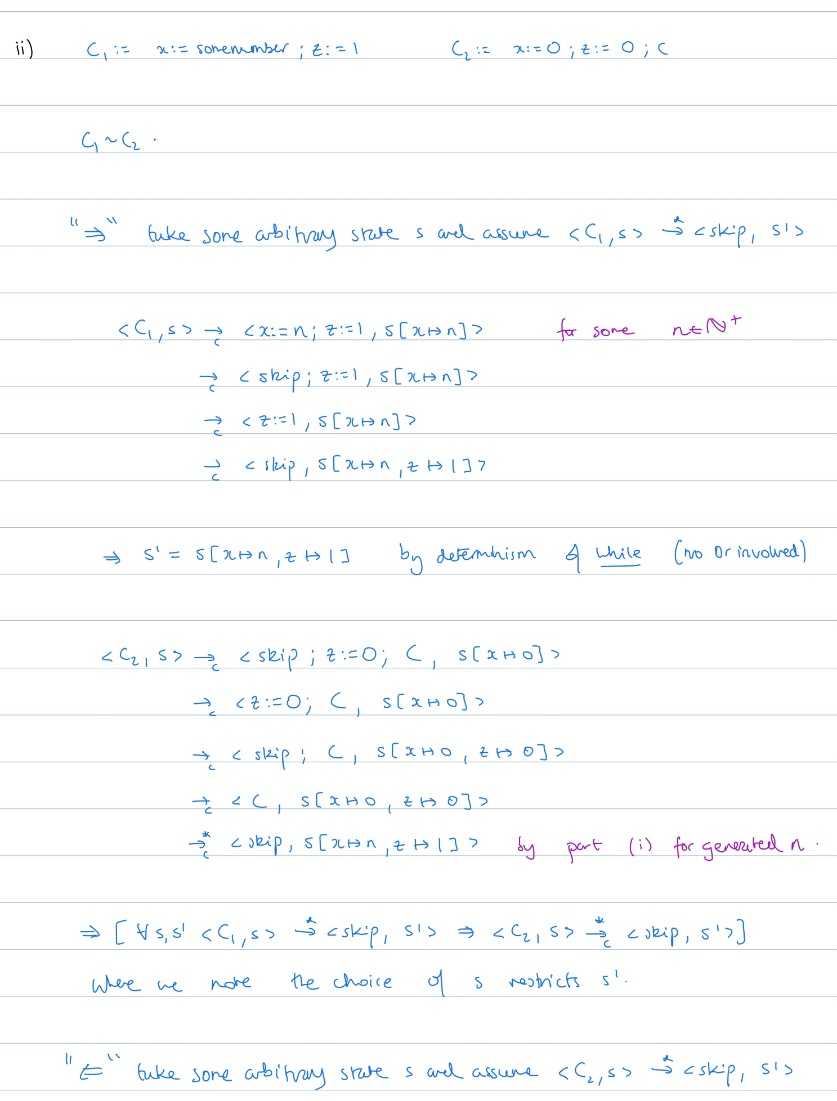 ii) C₁ := x := somenumber ; z := 1 C₂ := x := 0 ; z := 0 ; C
C₁ ~ C₂ .
"⇒" take some arbitrary state s and assume <C₁, s> →* <skip, s'>
<C₁, s> →c <x := n ; z := 1, s[x ↦ n]> for some n ∈ ℕ⁺
→c <skip ; z := 1, s[x ↦ n]>
→c <z := 1, s[x ↦ n]>
→c <skip, s[x ↦ n, z ↦ 1]>
⇒ s' = s[x ↦ n, z ↦ 1] by determinism of while (no Or involved)
<C₂, s> →c <skip ; z := 0 ; C, s[x ↦ 0]>
→c <z := 0 ; C, s[x ↦ 0]>
→c <skip ; C, s[x ↦ 0, z ↦ 0]>
→c <C, s[x ↦ 0, z ↦ 0]>
→c* <skip, s[x ↦ n, z ↦ 1]> by part (i) for generated n .
⇒ [∀ s, s' <C₁, s> →* <skip, s'> ⇒ <C₂, s> →c* <skip, s'>]
where we note the choice of s restricts s'.
"⇐" take some arbitrary state s and assume <C₂, s> →* <skip, s'>